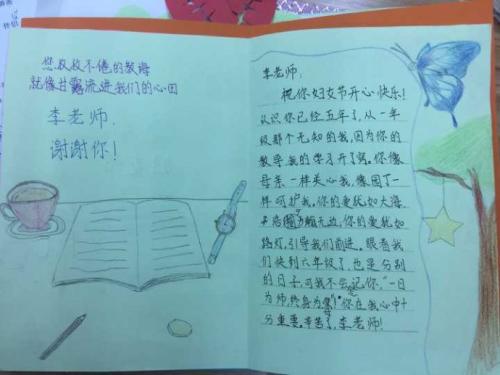 您孜孜不倦的教诲
就像甘露流进我们的心田
李老师,
谢谢你!
李老师:
祝你妇女节开心快乐!
认识你已经五年了,从一年
级那个无知的我,因为你的
教导我的学习开了窍。你像
母亲一样关心我,像园丁一
样呵护我,你的爱犹如大海
无边无际,你的爱犹如
路灯,引导我们前进。眼看我
们快到六年级了,也是分别
的日子,可我不会忘记你,"一日
为师,终身为"你在我心中十
分重要。辛苦了,李老师!